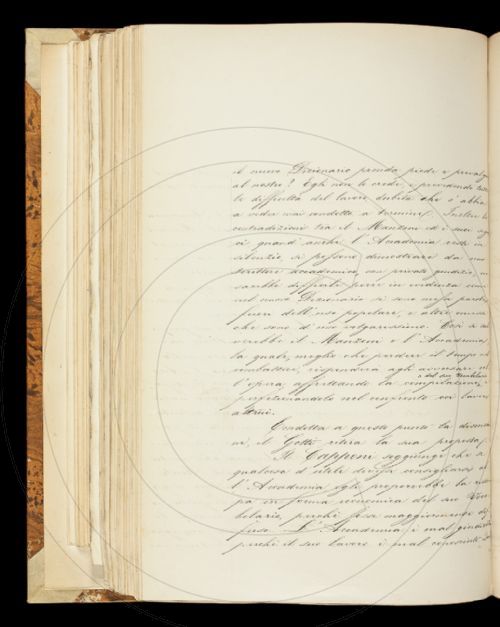 il nuovo Dizionario prenda piede e prevalga
al nostro? Egli non lo crede, e prevedendo tutte
le difficoltà del lavoro dubita che s'abbia
a veder mai condotto a termine. Inoltre la
contradizione tra il Manzoni ed i suoi
ci quand' anche l'Accademia resti in
silenzio, si possono dimostrare da uno
scrittore accademico, con privato giudizio, e
sarebbe difficile porre in evidenza come
nel nuovo Dizionario si sono messe parole
fuori dell'uso popolare, e altre messe
che sono d'uso volgarissimo. Così si
verebbe il Manzoni e l'Accademia,
la quale, meglio che perdere il tempo a
combattere, risponderà agli avversari col
l'opera, affrettando la compilazione,
e del suo Vocabolario
perfezionandolo nel confronto coi lavori
altrui.
Condotta a questo punto la discussio
ne, il Gotti ritira la sua proposta.
Il Capponi soggiunge che a
qualcosa d'utile doveva consigliarsi
l'Accademia egli proporrebbe la stam
pa in forma economica del suo Voca
bolario, perchè fosse maggiormente dif
fuso. L'Accademia è mal giudicata
perchè il suo lavoro è mal conosciuto